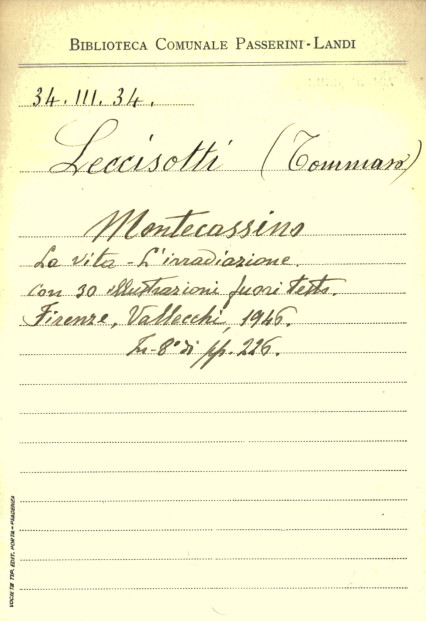 BIBLIOTECA COMUNALE PASSERINI-LANDI
34. III. 34.
Leccisotti (Tommaso)
Montecassino
La vita - L'irradiazione.
con 30 illustrazioni fuori testo.
Firenze, Vallecchi, 1946.
In-8° di pp. 226.
SOCIETÀ TIP. EDIT. PORTA - PIACENZA